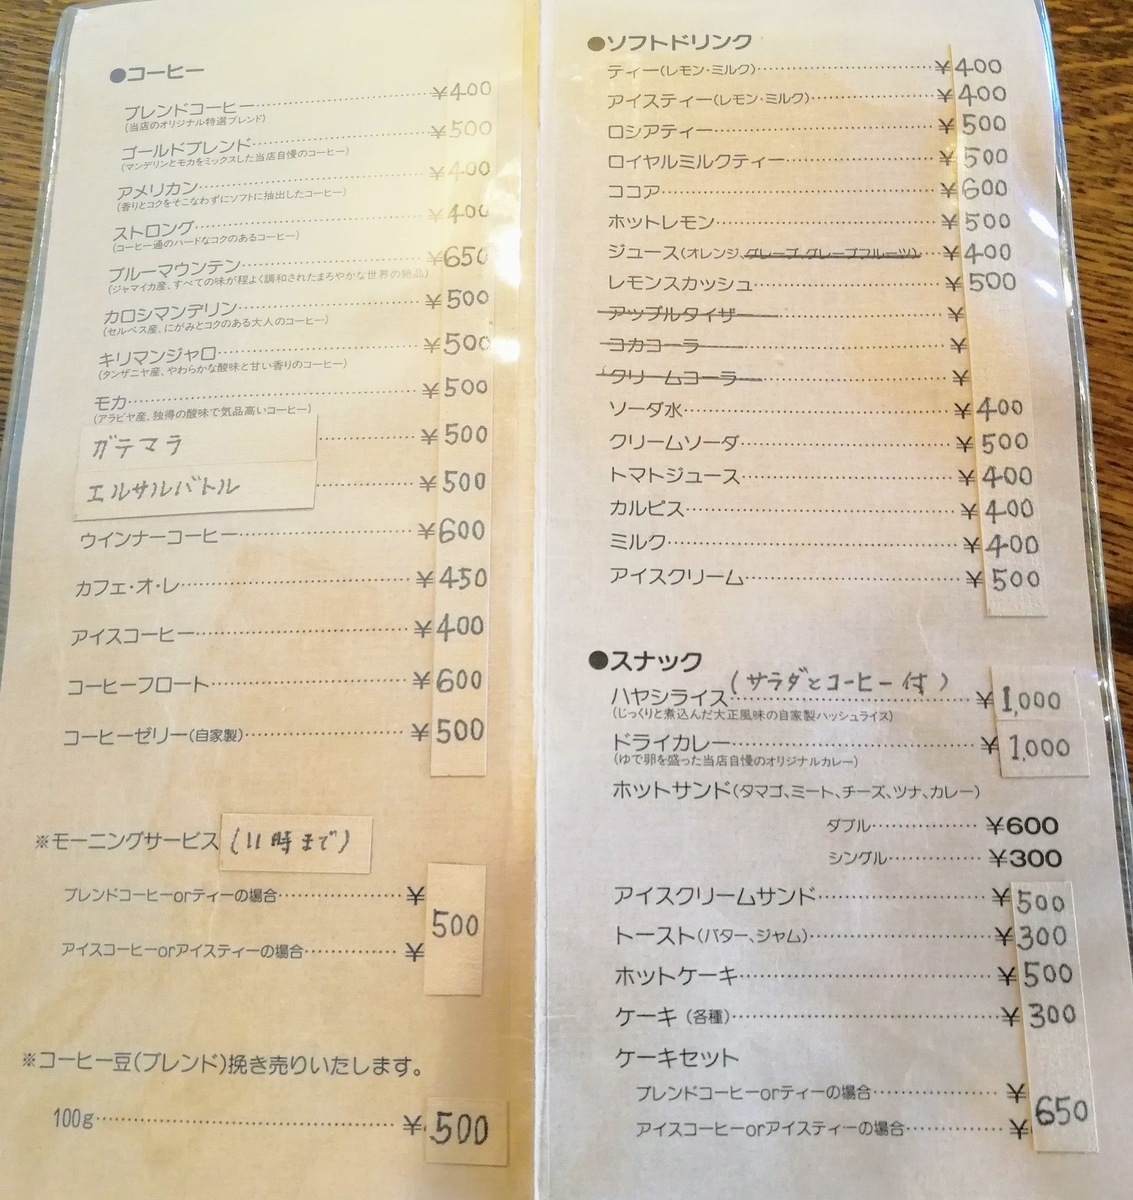 ●コーヒー
ブレンドコーヒー ¥400
(当店のオリジナル特選ブレンド)
ゴールドブレンド ¥500
(マンデリンとモカをミックスした当店自慢のコーヒー)
アメリカン ¥400
(香りとコクをそこなわずにソフトに抽出したコーヒー)
ストロング ¥400
(コーヒー通のハードなコクのあるコーヒー)
ブルーマウンテン ¥650
(ジャマイカ産、すべての味が程よく調和されたまろやかな世界の絶品)
カロシマンデリン ¥500
(セルベス産、にがみとコクのある大人のコーヒー)
キリマンジャロ ¥500
(タンザニヤ産、やわらかな酸味と甘い香りのコーヒー)
モカ ¥500
(アラビヤ産、独得の酸味で気品高いコーヒー)
ガテマラ ¥500
エルサルバトル ¥500
ウインナーコーヒー ¥600
カフェ・オ・レ ¥450
アイスコーヒー ¥400
コーヒーフロート ¥600
コーヒーゼリー(自家製) ¥500
※モーニングサービス(11時まで)
ブレンドコーヒーorティーの場合 ¥
500
アイスコーヒーorアイスティーの場合 ¥
※コーヒー豆(ブレンド)挽き売りいたします。
100g ¥500
●ソフトドリンク
ティー(レモン・ミルク) ¥400
アイスティー(レモン・ミルク) ¥400
ロシアティー ¥500
ロイヤルミルクティー ¥500
ココア ¥600
ホットレモン ¥500
ジュース(オレンジ、グレープ、グレープフルーツ) ¥400
レモンスカッシュ ¥500
アップルタイザー ¥
コカコーラ ¥
クリームコーラ ¥
ソーダ水 ¥400
クリームソーダ ¥500
トマトジュース ¥400
カルピス ¥400
ミルク ¥400
アイスクリーム ¥500
●スナック
(サラダとコーヒー付)
ハヤシライス ¥1,000
(じっくりと煮込んだ大正風味の自家製ハッシュライス)
ドライカレー ¥1,000
(ゆで卵を盛った当店自慢のオリジナルカレー)
ホットサンド(タマゴ、ミート、チーズ、ツナ、カレー)
ダブル ¥600
シングル ¥300
アイスクリームサンド ¥500
トースト(バター、ジャム) ¥300
ホットケーキ ¥500
ケーキ(各種) ¥300
ケーキセット
ブレンドコーヒーorティーの場合 ¥
650
アイスコーヒーorアイスティーの場合 ¥